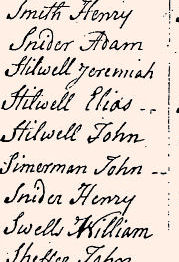 Smith Henry
Snider Adam
Stilwell Jeremiah
Stilwell Elias --
Stilwell John
Simerman John --
Snider Henry
Swells William
John